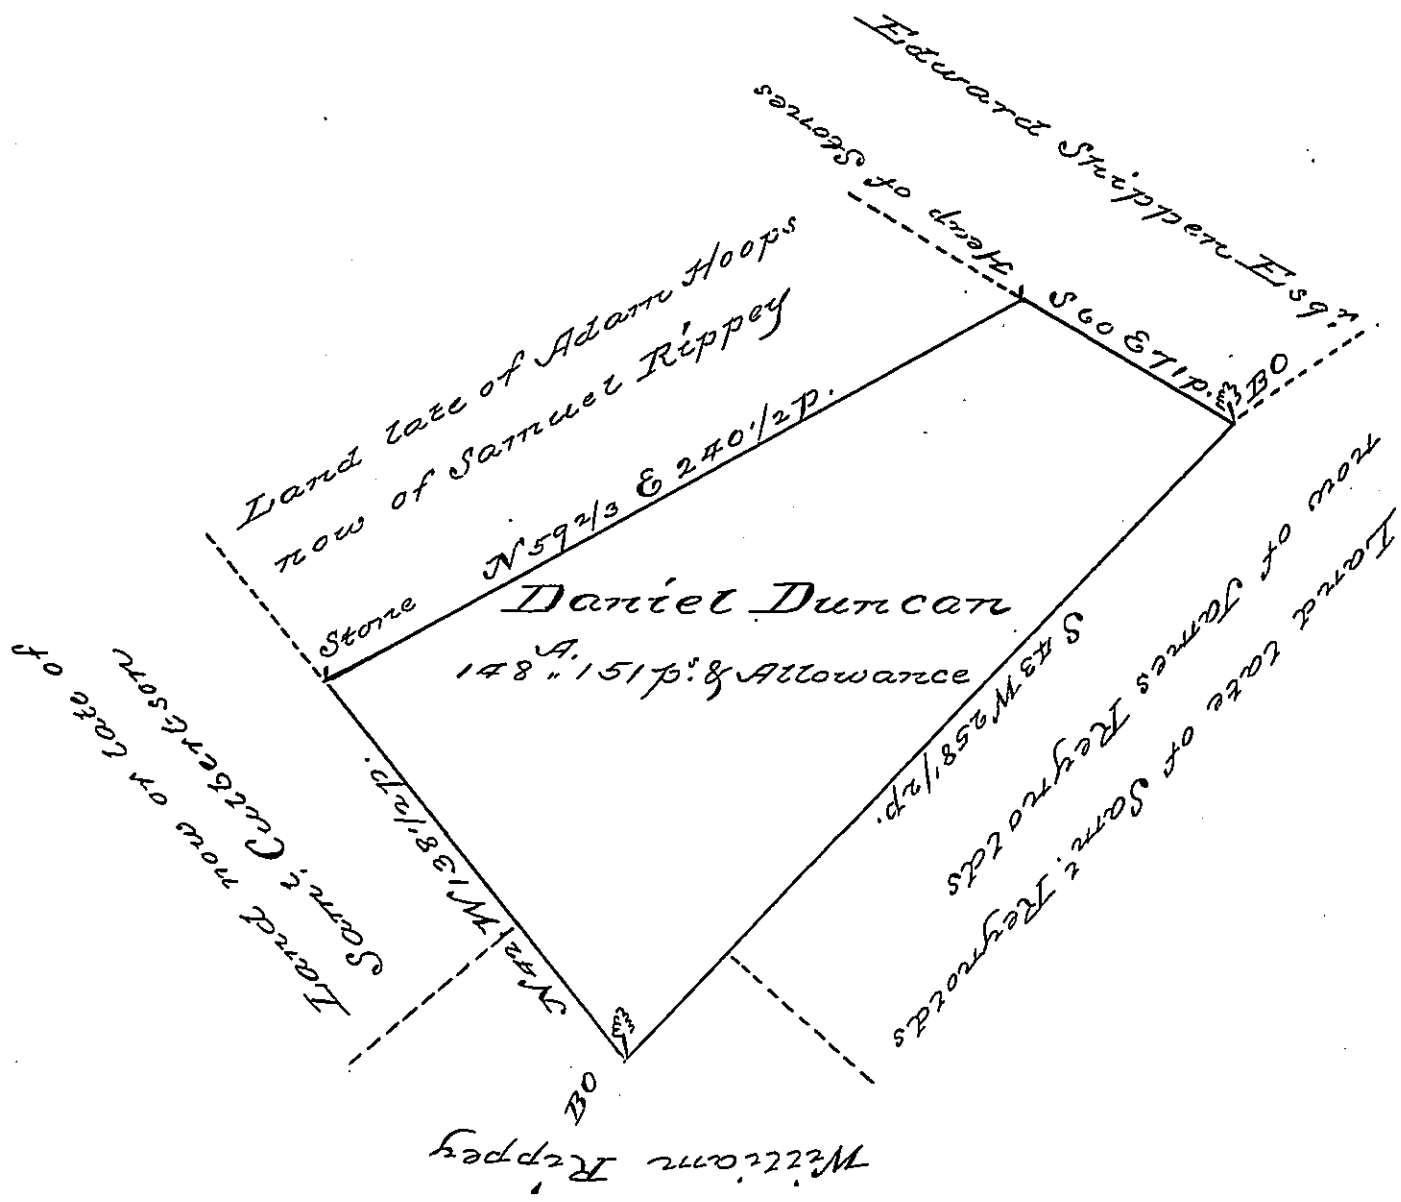 Edward Shippen Esq.r
Heap of Stones
S 60 E 71 p.
BO
Land late of Adam Hoops
now of Samuel Rippey
N 59 2/3 E 240 1/2 p.
Stone
Daniel Duncan
148 A. „ 151 p.s & Allowance
S 43 W 258 1/2 p.
Land late of Sam.l Reynolds
now of James Reynolds
Land now or late of
Sam.l Culbertson
N 42 W 138 1/2 p.
BO
William Rippey